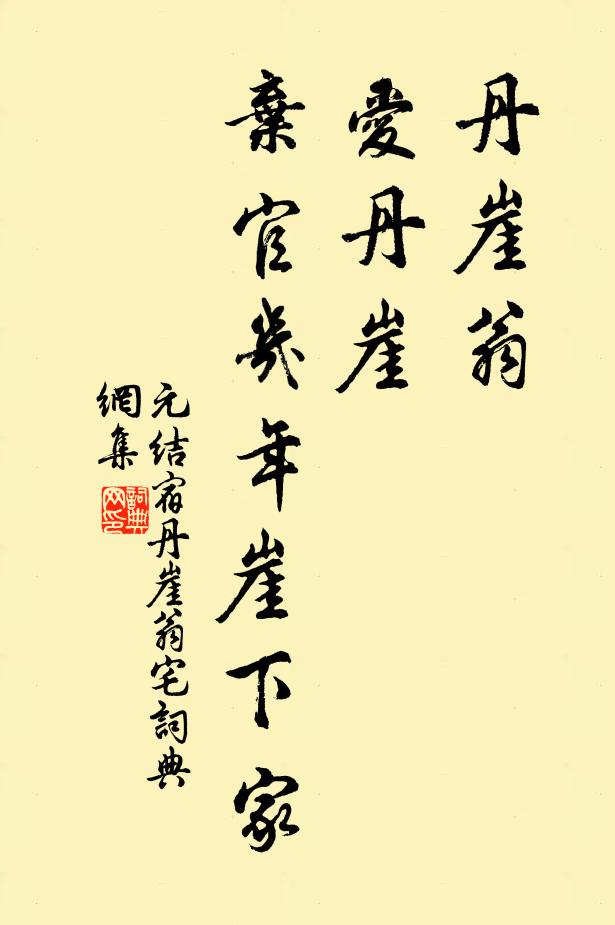 丹崖翁
愛丹崖
棄官幾年崖下家
元結宿丹崖翁宅詞典
網集
詞典
网印